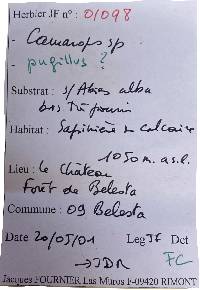 Herbier JF n° : 01098
- Camarops sp
- pugillus ?
Substrat : s/ Abies alba
Habitat : Sapinière sur calcaire
1050 m. a.s.l.
Lieu : le Château
Forêt de Belesta
Commune : 09 Belesta
Date 20/05/01 Leg JF Det
→ JDR FC
Jacques FOURNIER Las Muros F-09420 RIMONT